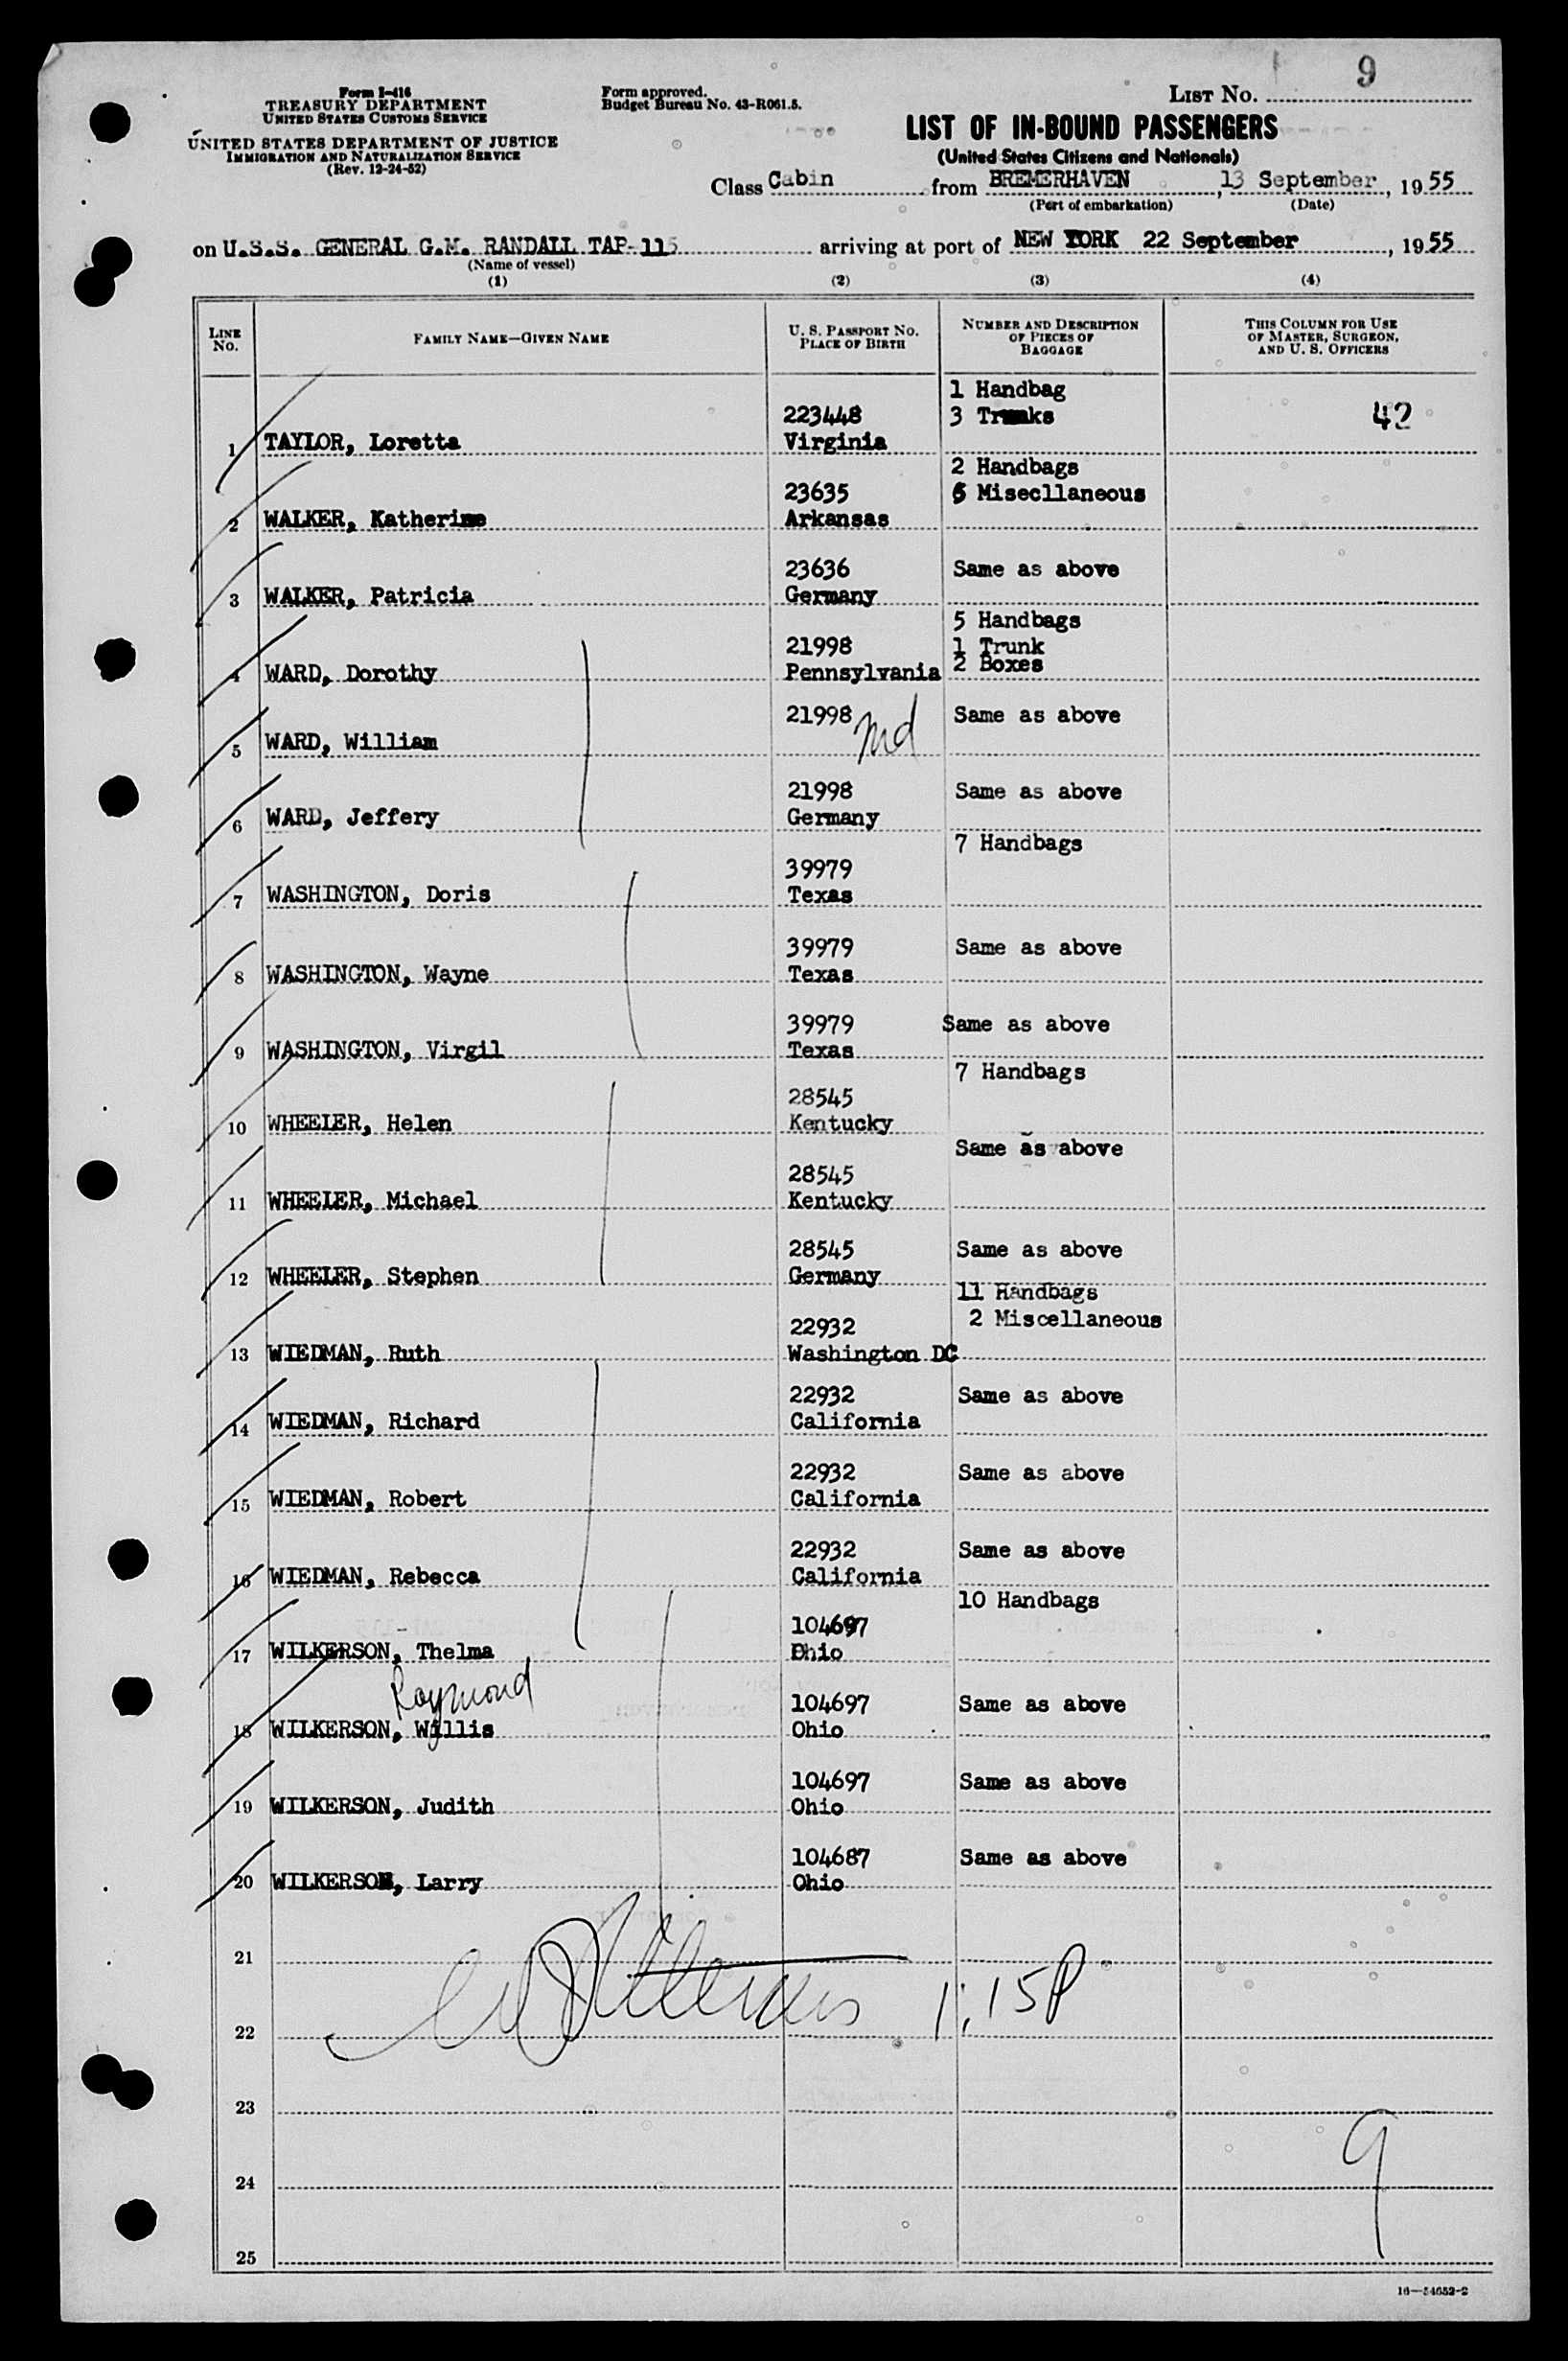 9
Form I-416
TREASURY DEPARTMENT
UNITED STATES CUSTOMS SERVICE
UNITED STATES DEPARTMENT OF JUSTICE
IMMIGRATION AND NATURALIZATION SERVICE
(Rev. 12-24-52)
Form approved.
Budget Bureau No. 43-R061.5.
LIST No.
LIST OF IN-BOUND PASSENGERS
(United States Citizens and Nationals)
Class Cabin from BREMERHAVEN, 13 September, 1955
(Port of embarkation) (Date)
on U.S.S. GENERAL G.M. RANDALL TAP-115 arriving at port of NEW YORK 22 September, 1955
(Name of vessel)
(1) (2) (3) (4)
LINE No. FAMILY NAME—GIVEN NAME U. S. PASSPORT No. PLACE OF BIRTH NUMBER AND DESCRIPTION OF PIECES OF BAGGAGE THIS COLUMN FOR USE OF MASTER, SURGEON, AND U. S. OFFICERS
1 Handbag
223448 3 Trunks 42
1 TAYLOR, Loretta Virginia
2 Handbags
23635 6 Misecllaneous
2 WALKER, Katherine Arkansas
23636 Same as above
3 WALKER, Patricia Germany
5 Handbags
21998 1 Trunk
4 WARD, Dorothy Pennsylvania 2 Boxes
21998 md Same as above
5 WARD, William
21998 Same as above
6 WARD, Jeffery Germany
7 Handbags
39979
7 WASHINGTON, Doris Texas
39979 Same as above
8 WASHINGTON, Wayne Texas
39979 Same as above
9 WASHINGTON, Virgil Texas
7 Handbags
28545
10 WHEELER, Helen Kentucky
Same as above
28545
11 WHEELER, Michael Kentucky
28545 Same as above
12 WHEELER, Stephen Germany
11 Handbags
22932 2 Miscellaneous
13 WIEDMAN, Ruth Washington DC
22932 Same as above
14 WIEDMAN, Richard California
22932 Same as above
15 WIEDMAN, Robert California
22932 Same as above
16 WIEDMAN, Rebecca California
10 Handbags
104697
17 WILKERSON, Thelma Ohio
Raymond
104697 Same as above
18 WILKERSON, Willis Ohio
104697 Same as above
19 WILKERSON, Judith Ohio
104687 Same as above
20 WILKERSON, Larry Ohio
21
1:15P
22
23
9
24
25
16—54652-2